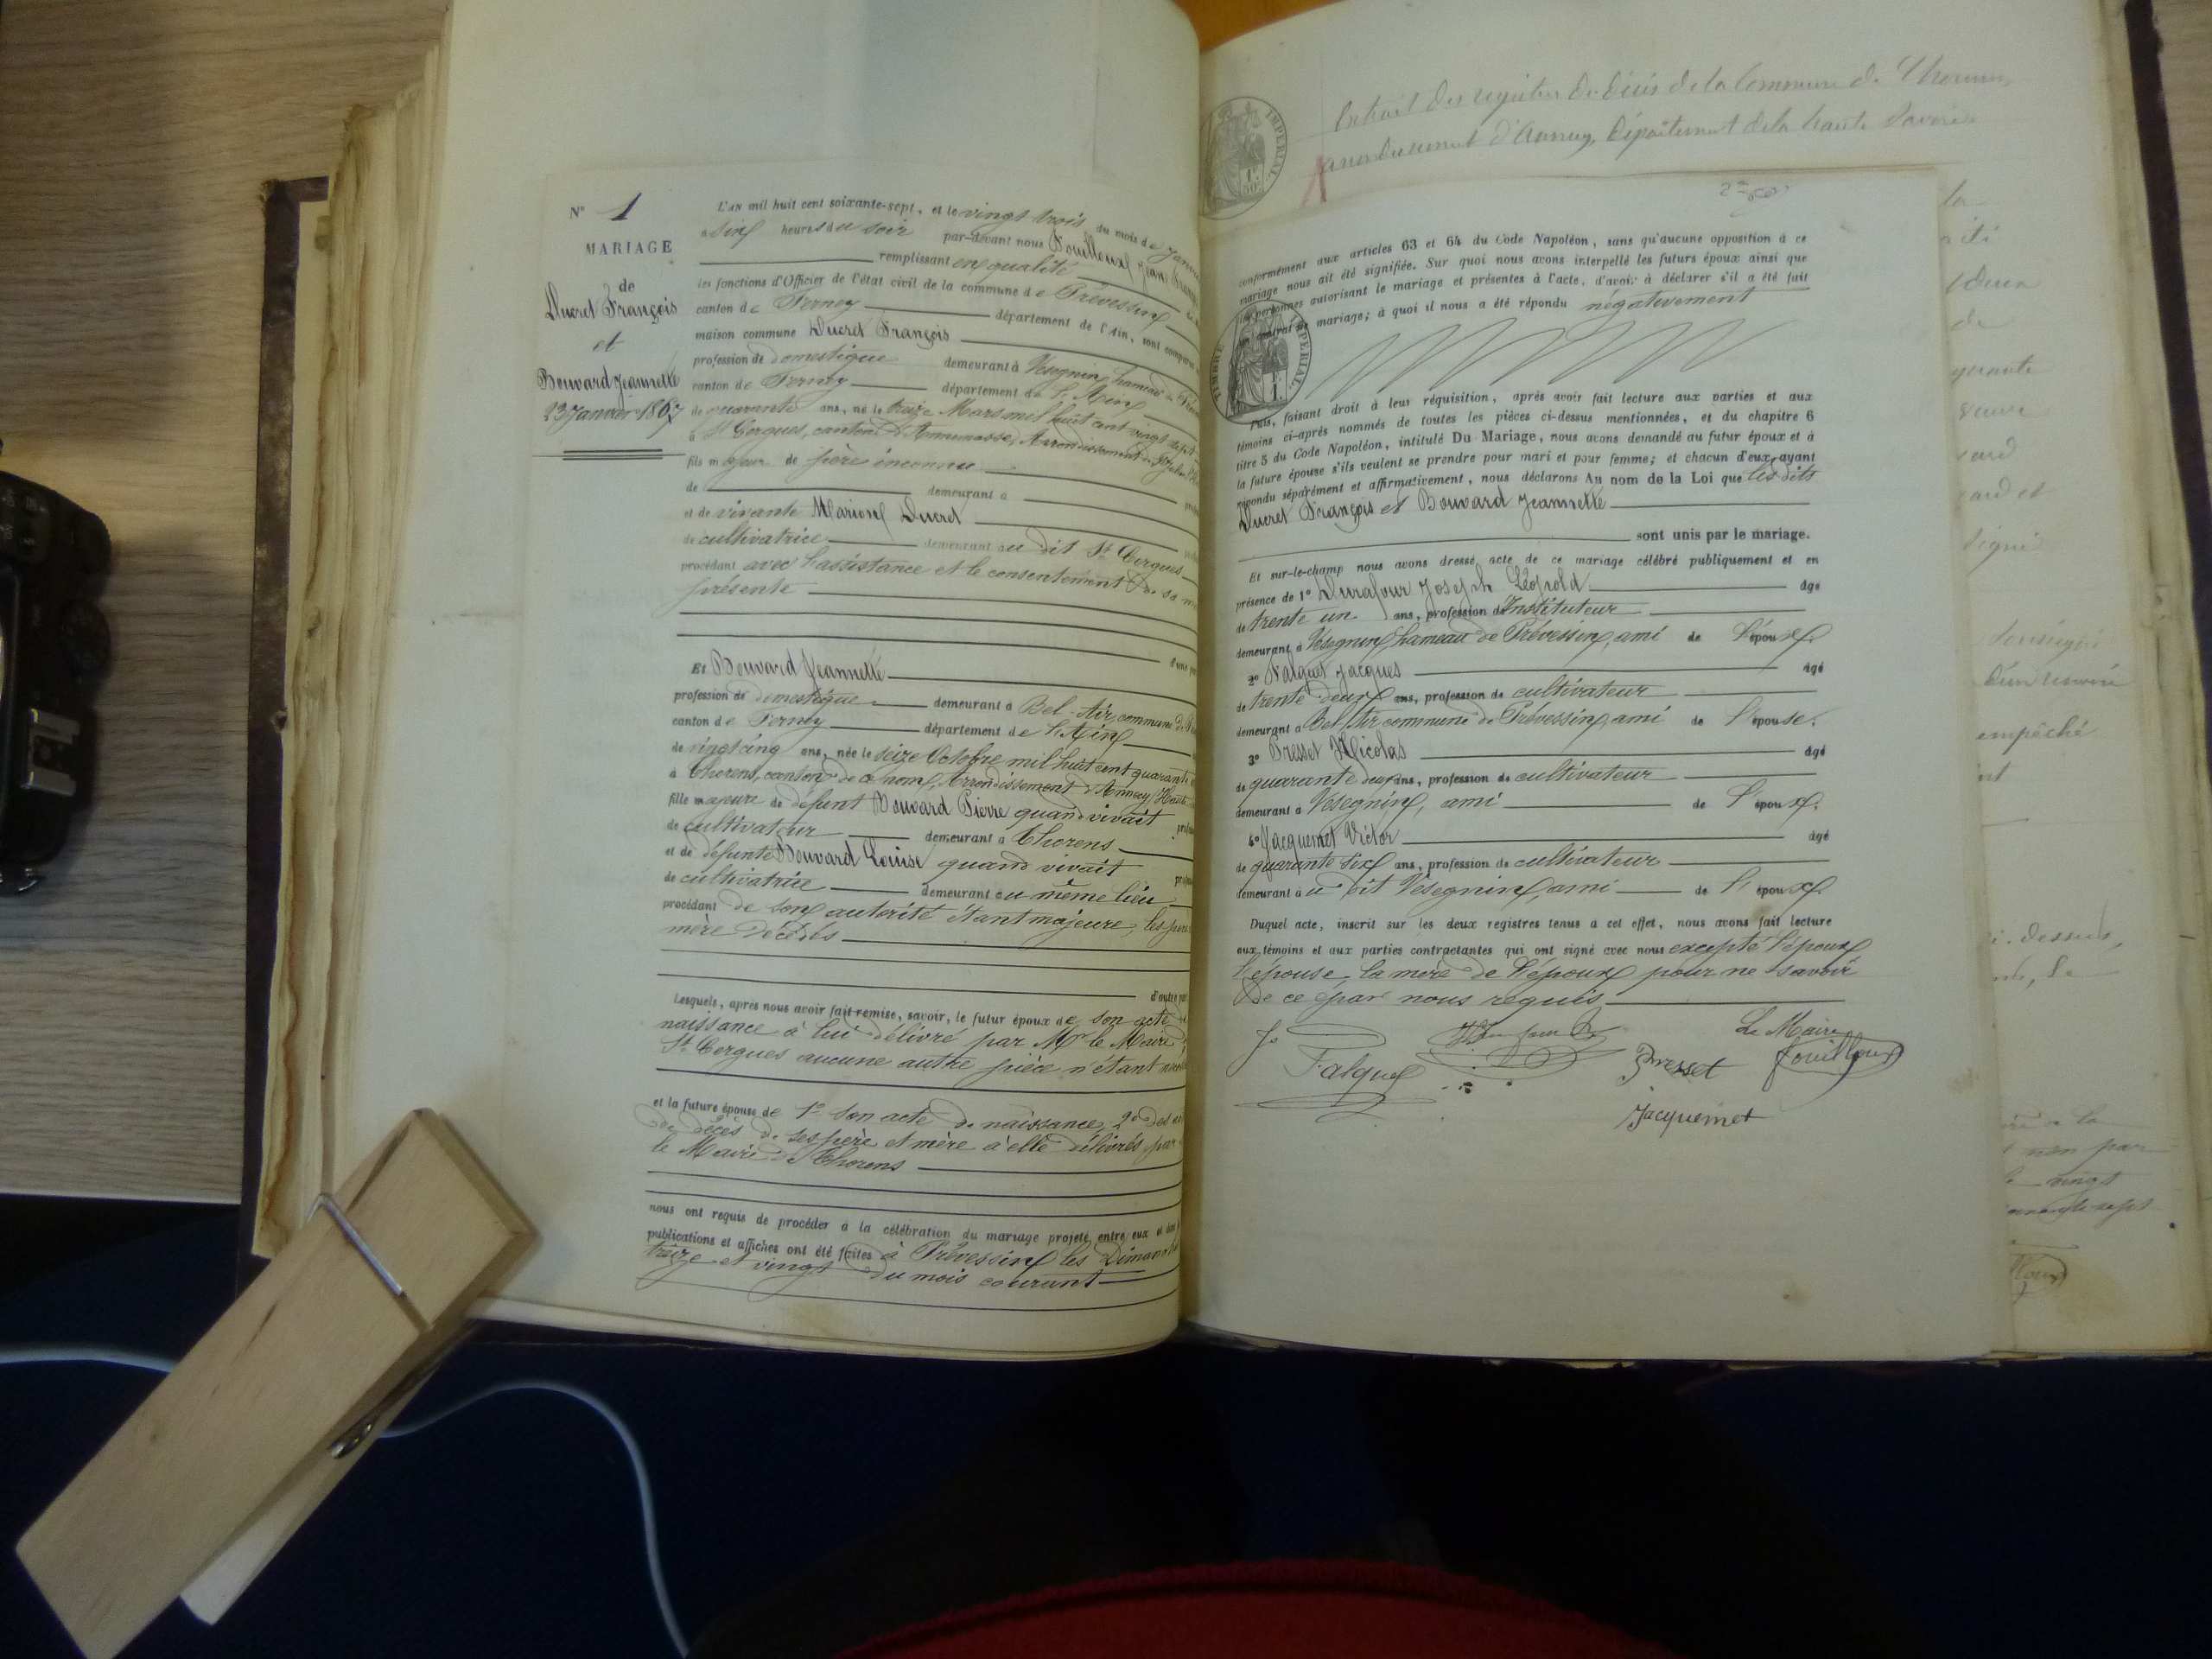 N° 1
MARIAGE
de
Ducret François
et
Bouvard Jeannette
23 Janvier 1867
L'AN mil huit cent soixante-sept, et le vingt trois du mois de
à six heures du soir par-devant nous Fouilloux Jean
remplissant en qualité
les fonctions d'Officier de l'état civil de la commune de Prévessin
canton de Ferney département de l'Ain, sont comparus
maison commune Ducret François
profession de domestique demeurant à Vésegnin, hameau de
canton de Ferney département de l'Ain
de quarante ans, né le treize Mars mil huit cent vingt
à St Cergues, canton d'Annemasse, Arrondissement de St Julien
fils majeur de père inconnu
de demeurant à
et de vivante Marion Ducret
de cultivatrice demeurant au dit St Cergues
procédant avec l'assistance et le consentement de sa
présente
Et Bouvard Jeannette
profession de domestique demeurant à Bel-Air, commune de
canton de Ferney département de l'Ain
de vingt cinq ans, née le seize Octobre mil huit cent quarante
à Thorens, canton de ce nom, Arrondissement d'Annecy
fille majeure de défunt Bouvard Pierre quand vivait
de cultivateur demeurant à Thorens
et de défunte Bouvard Louise quand vivait
de cultivatrice demeurant au même lieu
procédant de son autorité étant majeure, les
mère décédés
Lesquels, après nous avoir fait remise, savoir, le futur époux de son acte de
naissance à lui délivré par Mr le Maire de
St Cergues aucune autre pièce n'étant
et la future épouse de 1° son acte de naissance, 2° des
de décès de ses père et mère à elle délivrés par
le Maire de Thorens
nous ont requis de procéder à la célébration du mariage projeté entre eux et dont
publications et affiches ont été faites à Prévessin les Dimanches
treize et vingt du mois courant
Extrait des registres de décès de la Commune de Thorens
arrondissement d'Annecy, Département de la haute Savoie
IMPÉRIAL
conformément aux articles 63 et 64 du Code Napoléon, sans qu'aucune opposition à ce
mariage nous ait été signifiée. Sur quoi nous avons interpellé les futurs époux ainsi que
les personnes autorisant le mariage et présentes à l'acte, d'avoir à déclarer s'il a été fait
contrat de mariage; à quoi il nous a été répondu négativement
TIMBRE IMPÉRIAL
Puis, faisant droit à leur réquisition, après avoir fait lecture aux parties et aux
témoins ci-après nommés de toutes les pièces ci-dessus mentionnées, et du chapitre 6
titre 5 du Code Napoléon, intitulé Du Mariage, nous avons demandé au futur époux et à
la future épouse s'ils veulent se prendre pour mari et pour femme; et chacun d'eux ayant
répondu séparément et affirmativement, nous déclarons Au nom de la Loi que les dits
Ducret François et Bouvard Jeannette
sont unis par le mariage.
Et sur-le-champ nous avons dressé acte de ce mariage célébré publiquement et en
présence de 1° Durafour Joseph Léopold âgé
de trente un ans, profession d'Instituteur
demeurant à Vésegnin, hameau de Prévessin, ami de l'époux.
2° Falquet Jacques âgé
de trente deux ans, profession de cultivateur
demeurant à Bel-Air commune de Prévessin, ami de l'épouse.
3° Presset Nicolas âgé
de quarante deux ans, profession de cultivateur
demeurant à Vésegnin, ami de l'époux.
4° Jacquemet Victor âgé
de quarante six ans, profession de cultivateur
demeurant au dit Vésegnin, ami de l'époux
Duquel acte, inscrit sur les deux registres tenus à cet effet, nous avons fait lecture
aux témoins et aux parties contractantes qui ont signé avec nous excepté l'époux
l'épouse, la mère de l'époux pour ne savoir
de ce par nous requis
Le Maire
Falquet
Presset
Fouilloux
Jacquemet
empêché